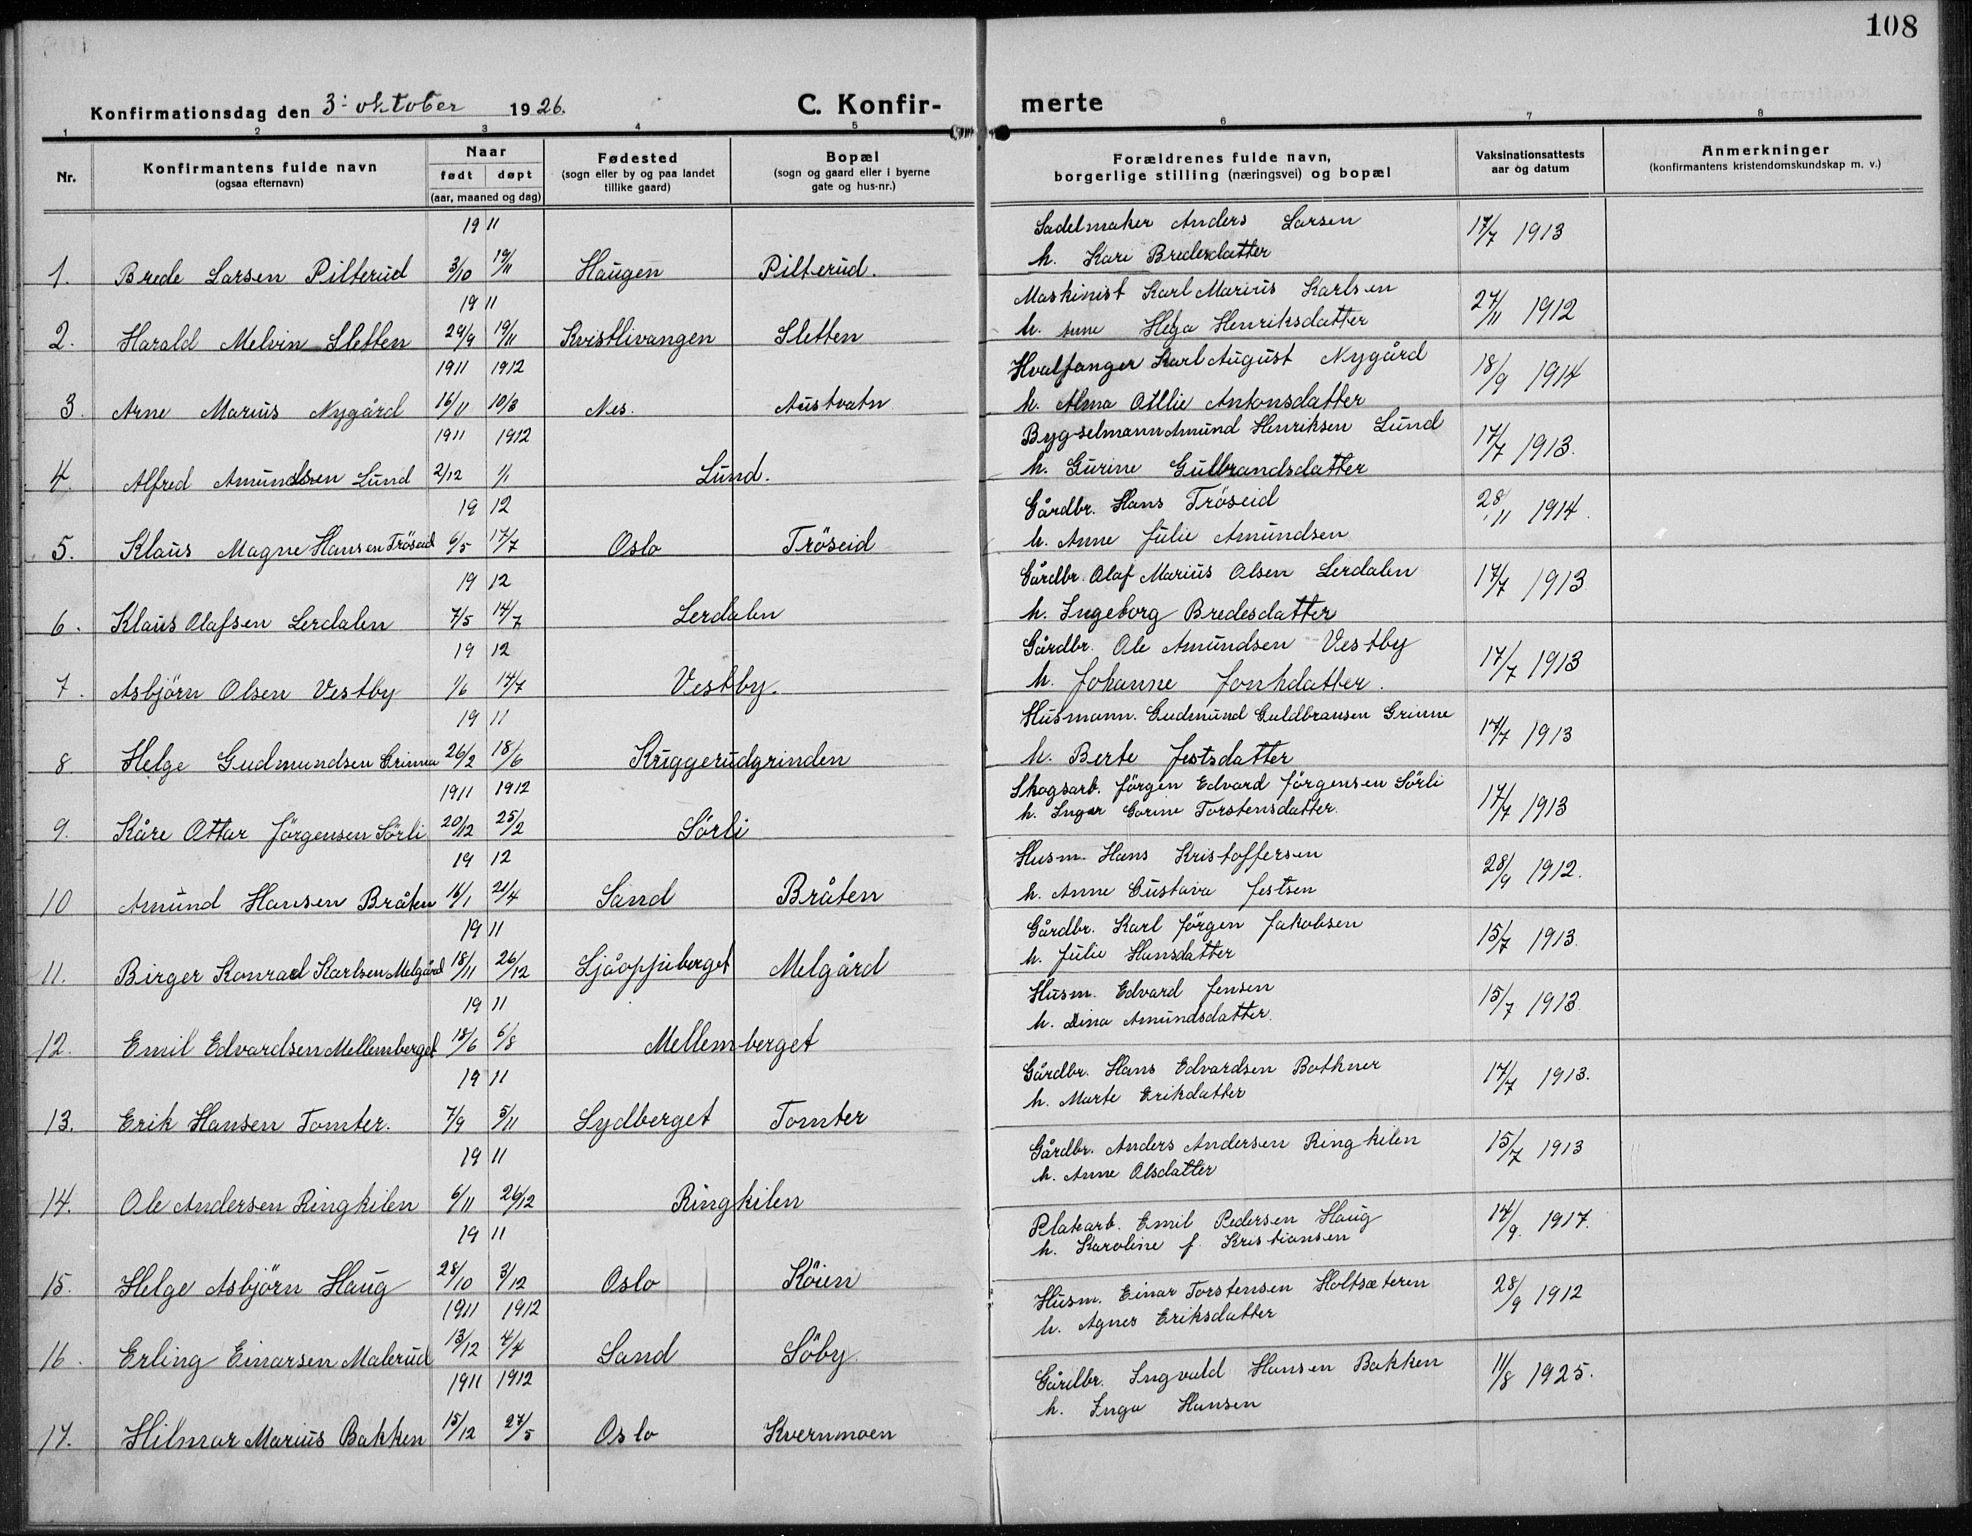 108
Konfirmationsdag den 3. oktober 1926.
C. Konfir-merte
1 2 3 4 5 6 7 8
Nr.
Konfirmantens fulde navn
(ogsaa efternavn)
Naar
født døpt
(aar, maaned og dag)
Fødested
(sogn eller by og paa landet
tillike gaard)
Bopæl
(sogn og gaard eller i byerne
gate og hus-nr.)
Forældrenes fulde navn,
borgerlige stilling (næringsvei) og bopæl
Vaksinationsattests
aar og datum
Anmerkninger
(konfirmantens kristendomskundskap m. v.)
19 11 Sadelmaker Anders Larsen
1. Brede Larsen Pilterud 3/10 19/11 Haugen Pilterud. h. Kari Bredesdatter 17/7 1913
19 11 Maskinist Karl Marius Karlsen
2. Harald Melvin Sletten 29/9 19/11 Kvistlivangen Sletten h. Helga Henriksdatter 27/11 1912
1911 1912 Hvalfanger Karl August Nygård
3. Arne Marius Nygård 16/11 10/3 Nes. Austvatn h. Alma Otllie Antonsdatter 18/9 1914
1911 1912 Bygselmann Amund Henriksen Lund
4. Alfred Amundsen Lund 2/12 1/1 Lund. h. Gurine Gulbrandsdatter 17/7 1913.
19 12 Gårdbr. Hans Tröseid
5. Klaus Magne Hansen Tröseid 6/5 17/7 Oslo Tröseid h. Anne Julie Amundsen 28/11 1914.
19 12 Gårdbr. Olaf Marius Olsen Lerdalen
6. Klaus Olafsen Lerdalen 7/5 14/7 Lerdalen h. Ingeborg Bredesdatter 17/7 1913
19 12 Gårdbr. Ole Amundsen Vestby
7. Asbjörn Olsen Vestby 1/6 14/7 Vestby. h. Johanne Jonhdatter. 17/7 1913
19 11 Husmann. Gudmund Guldbransen Grinne
8 Helge Gudmundsen Grinna 26/2 18/6 Kruggerudgrinden h. Berte Jestsdatter 17/7 1913
1911 1912 Skogsarb. Jörgen Edvard Jörgensen Sörli
9. Kåre Ottar Jörgensen Sörli 20/12 25/2 Sörli h. Inger Gorine Torstensdatter. 17/7 1913
19 12 Husm. Hans Kristoffersen
10 Amund Hansen Bråten 16/1 21/4 Sand Bråten h. Anne Gustava Jestsen 28/9 1912.
19 11 Gårdbr. Karl Jörgen Jakobsen
11. Birger Konrad Karlsen Melgård 18/11 26/12 Ljåoppiberget Melgård h. Julie Hansdatter 15/7 1913.
19 11 Husm. Edvard Jensen
12. Emil Edvardsen Mellemberget 18/6 6/8 Mellemberget h. Dina Amundsdatter. 15/7 1913
19 11 Gårdbr. Hans Edvardsen Bothner
13. Erik Hansen Tomter. 7/9 5/11 Lydberget Tomter h. Marte Erikdatter 17/7 1913.
19 11 Gårdbr. Anders Andersen Ringkilen
14. Ole Andersen Ringkilen 6/11 26/12 Ringkilen h. Anne Olsdatter 15/7 1913
19 11 Platearb. Emil Pedersen Haug
15. Helge Asbjörn Haug 28/10 3/12 Oslo Köien h. Karoline f. Kristiansen 14/9. 1917.
1911 1912 Husm. Einar Torstensen Holtsæteren
16. Erling Einarsen Malerud 13/12 4/4 Sand Söby. h. Agnes Eriksdatter 28/9 1912
1911 1912 Gårdbr. Ingvald Hansen Bakken
17. Hilmar Marius Bakken 15/12 27/5 Oslo Kvernmoen h. Inga Hansen 11/8 1925.